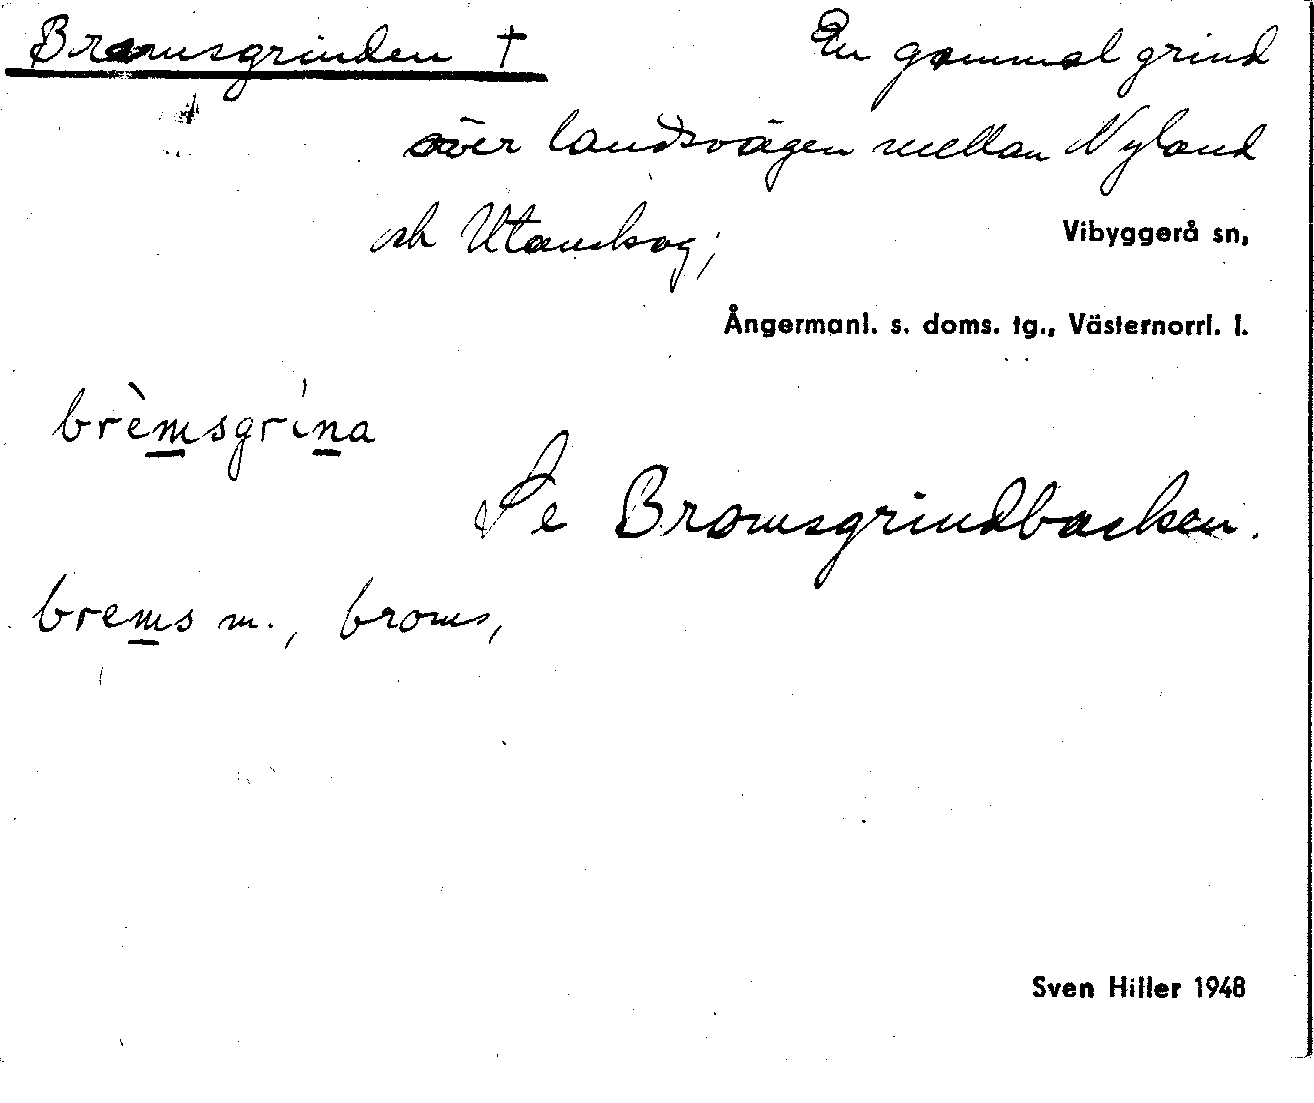 Bromsgrinden †
En gammal grind
över landsvägen mellan Nyland
och Utanskog;
Vibyggerå sn,
Ångermanl. s. doms. tg., Västernorrl. l.
brèmsgrína
Se Bromsgrindbacken.
brems m., broms,
Sven Hiller 1948